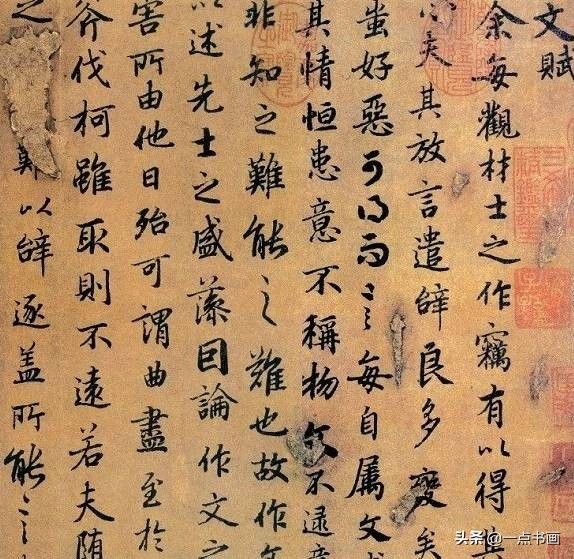 文賦
余每觀材士之作竊有以得
心夫其放言遣辭良多變矣
蚩好惡可得而言每自属文
其情恒患意不稱物文不逮意
非知之難能之難也故作文
以述先士之盛藻因論作文之
害所由他日殆可謂曲盡至於
斧伐柯雖取則不遠若夫随
之難以辭逐盖所能言
头条 @一点书画